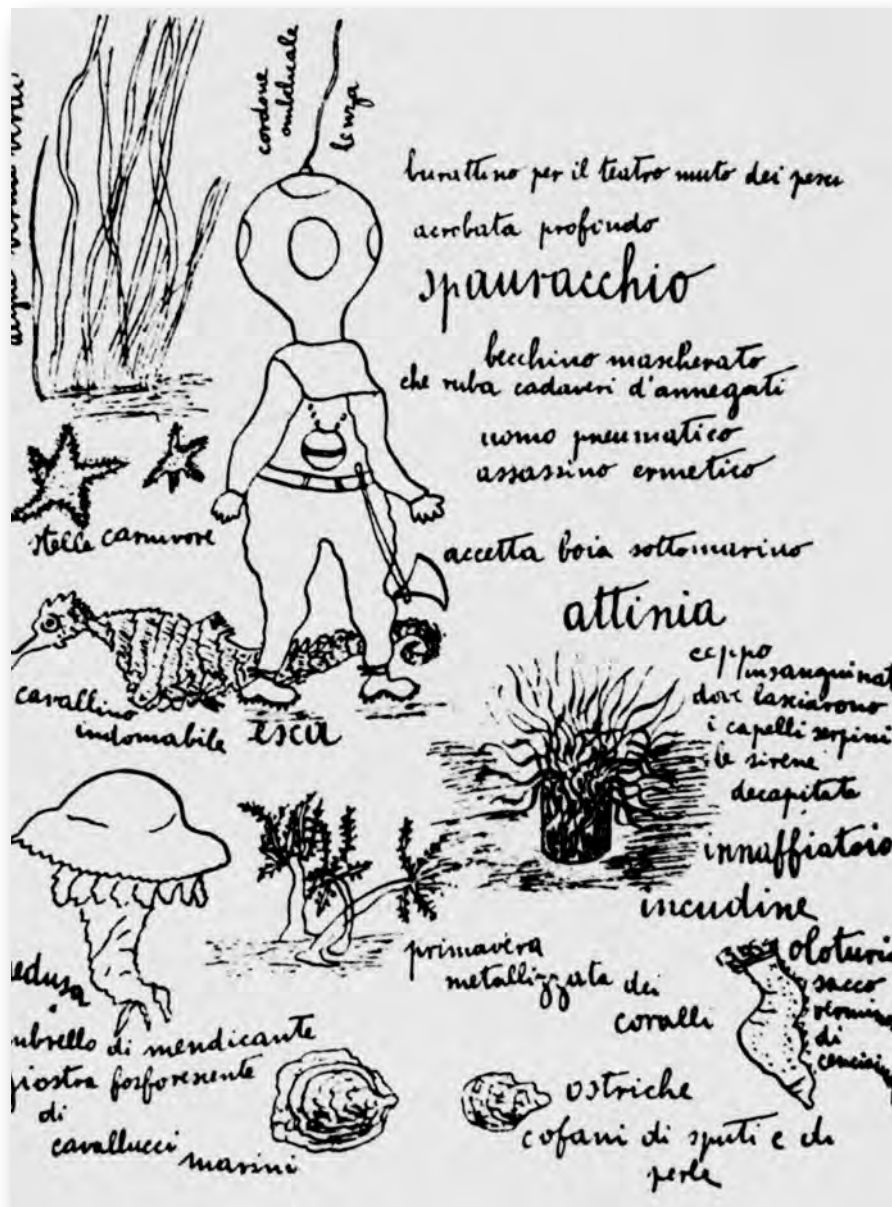 cordone
ombelicale
lenza
burattino per il teatro muto dei pesci
acrobata profondo
spauracchio
becchino mascherato
che ruba cadaveri d'annegati
uomo pneumatico
assassino ermetico
stelle carnivore
accetta boia sottomarino
attinia
ceppo
insanguinat
dove lasciarono
i capelli serpini
le sirene
decapitate
cavallino
indomabile
esca
innaffiatoio
incudine
primavera
metallizzata dei
coralli
oloturia
sacco
di
edusa
mbrello di mendicante
giostra fosforescente
di
cavallucci
marini
ostriche
cofani di sputi e di
perle